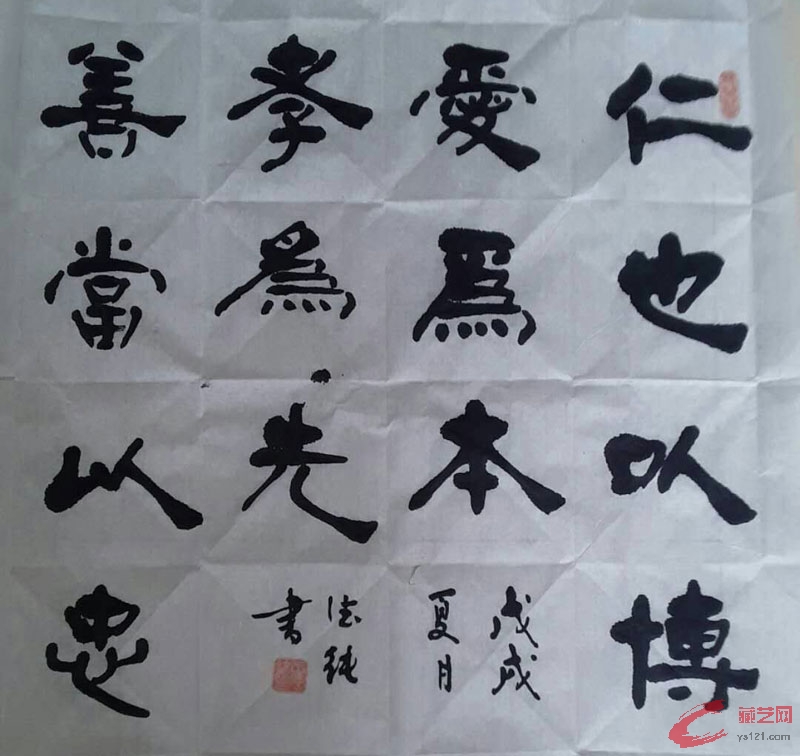 仁也以博
愛爲本
戊戌
夏月
孝為先
德純
書
善當以忠
藏艺网
ys121.com